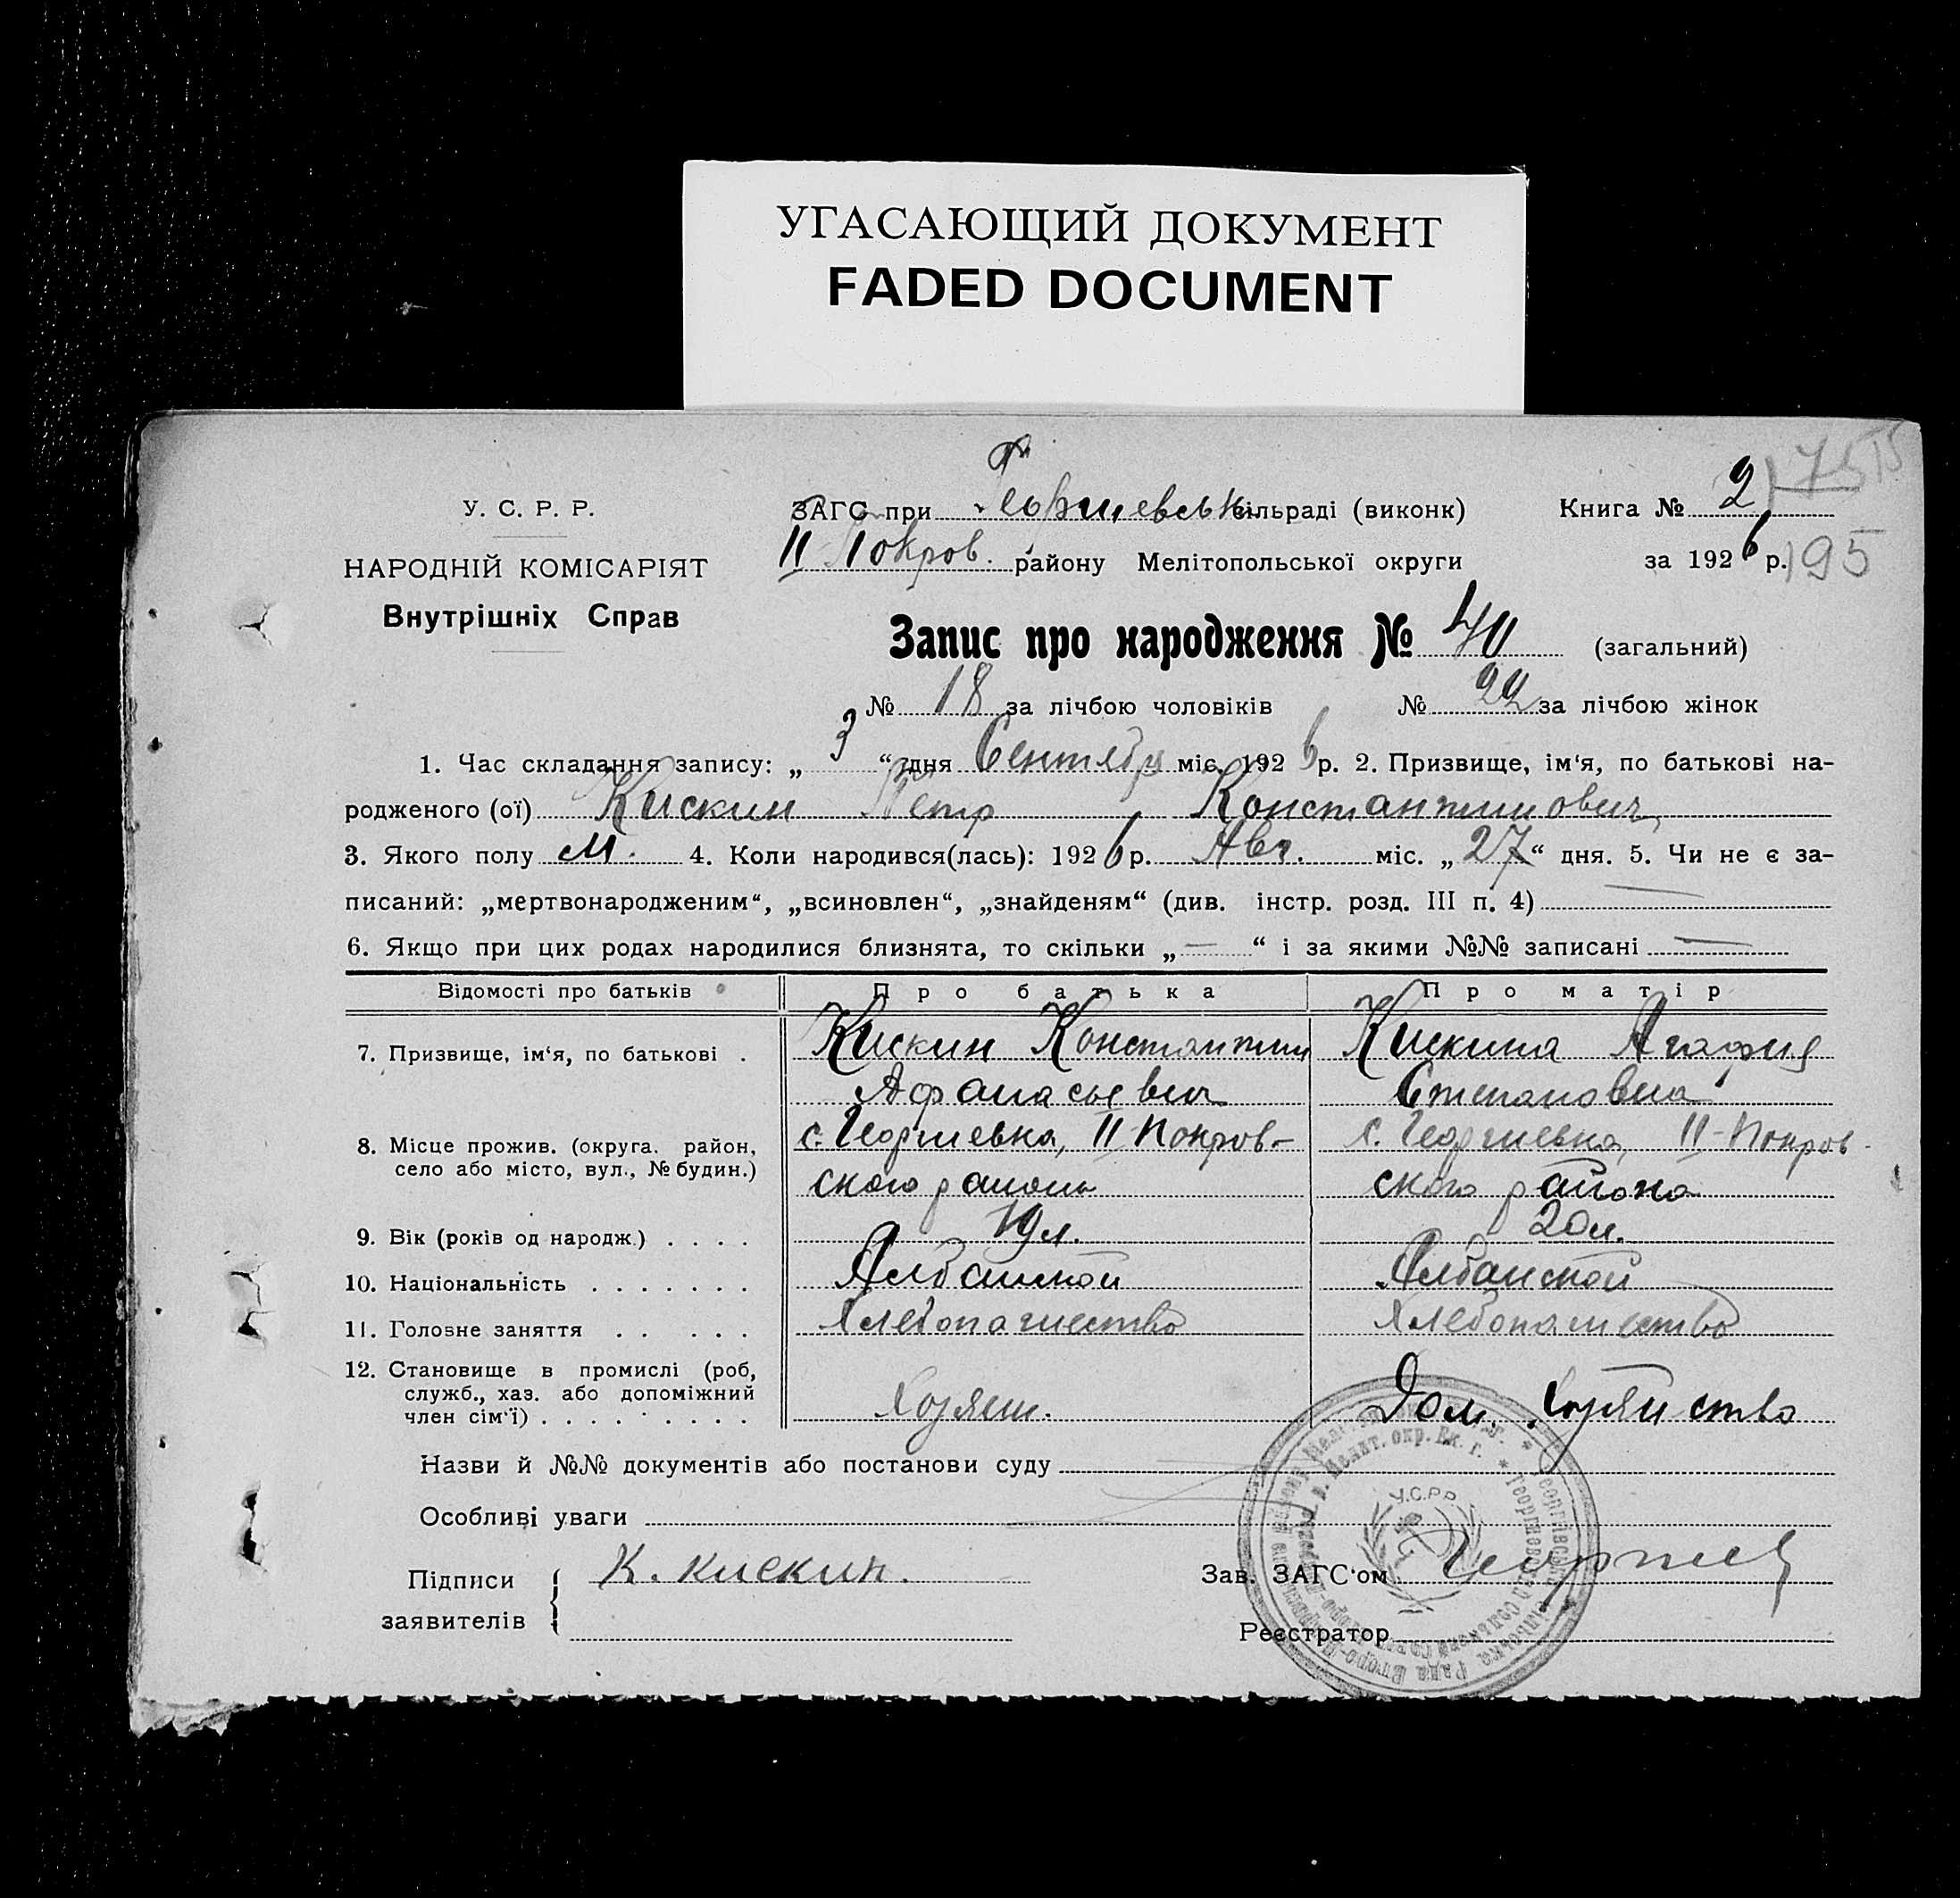 УГАСАЮЩИЙ ДОКУМЕНТ
FADED DOCUMENT
У. С. Р. Р.
НАРОДНІЙ КОМІСАРІЯТ
Внутрішніх Справ
ЗАГС при Георгиевськ сільраді (виконк)
II Покров. району Мелітопольської округи
Книга № 2
за 1926 р.
195
Запис про народження № 40 (загальний)
№ 18 за лічбою чоловіків № 22 за лічбою жінок
1. Час складання запису: „3“ дня Сентября міс. 1926 р. 2. Призвище, ім‘я, по батькові на-
родженого (ої) Кискин Петр Константинович
3. Якого полу М. 4. Коли народився(лась): 1926 р. Авг. міс. „27“ дня. 5. Чи не є за-
писаний: „мертвонародженим“, „всиновлен“, „знайденям“ (див. інстр. розд. III п. 4) —
6. Якщо при цих родах народилися близнята, то скільки „—“ і за якими №№ записані —
Відомості про батьків Про батька Про матір
7. Призвище, ім‘я, по батькові . Кискин Константин Кискина Агафия
Афанасьевич Степановна
8. Місце прожив. (округа. район, с. Георгиевка, II-Покров- с. Георгиевка, II-Покров-
село або місто, вул., № будин.) ского района ского района
9. Вік (років од народж.) . . . . 19 л. 20 л.
10. Національність . . . . . . . Албанской Албанской
11. Головне заняття . . . . . Хлебопашество Хлебопашество
12. Становище в промислі (роб,
служб., хаз. або допоміжний
член сім‘ї) . . . . . . . . . Хозяин. Дом. Хозяйство
Назви й №№ документів або постанови суду
Особливі уваги
Підписи К. Кискин.
заявителів
Зав. ЗАГС‘ом
Реєстратор
У.С.Р.Р.